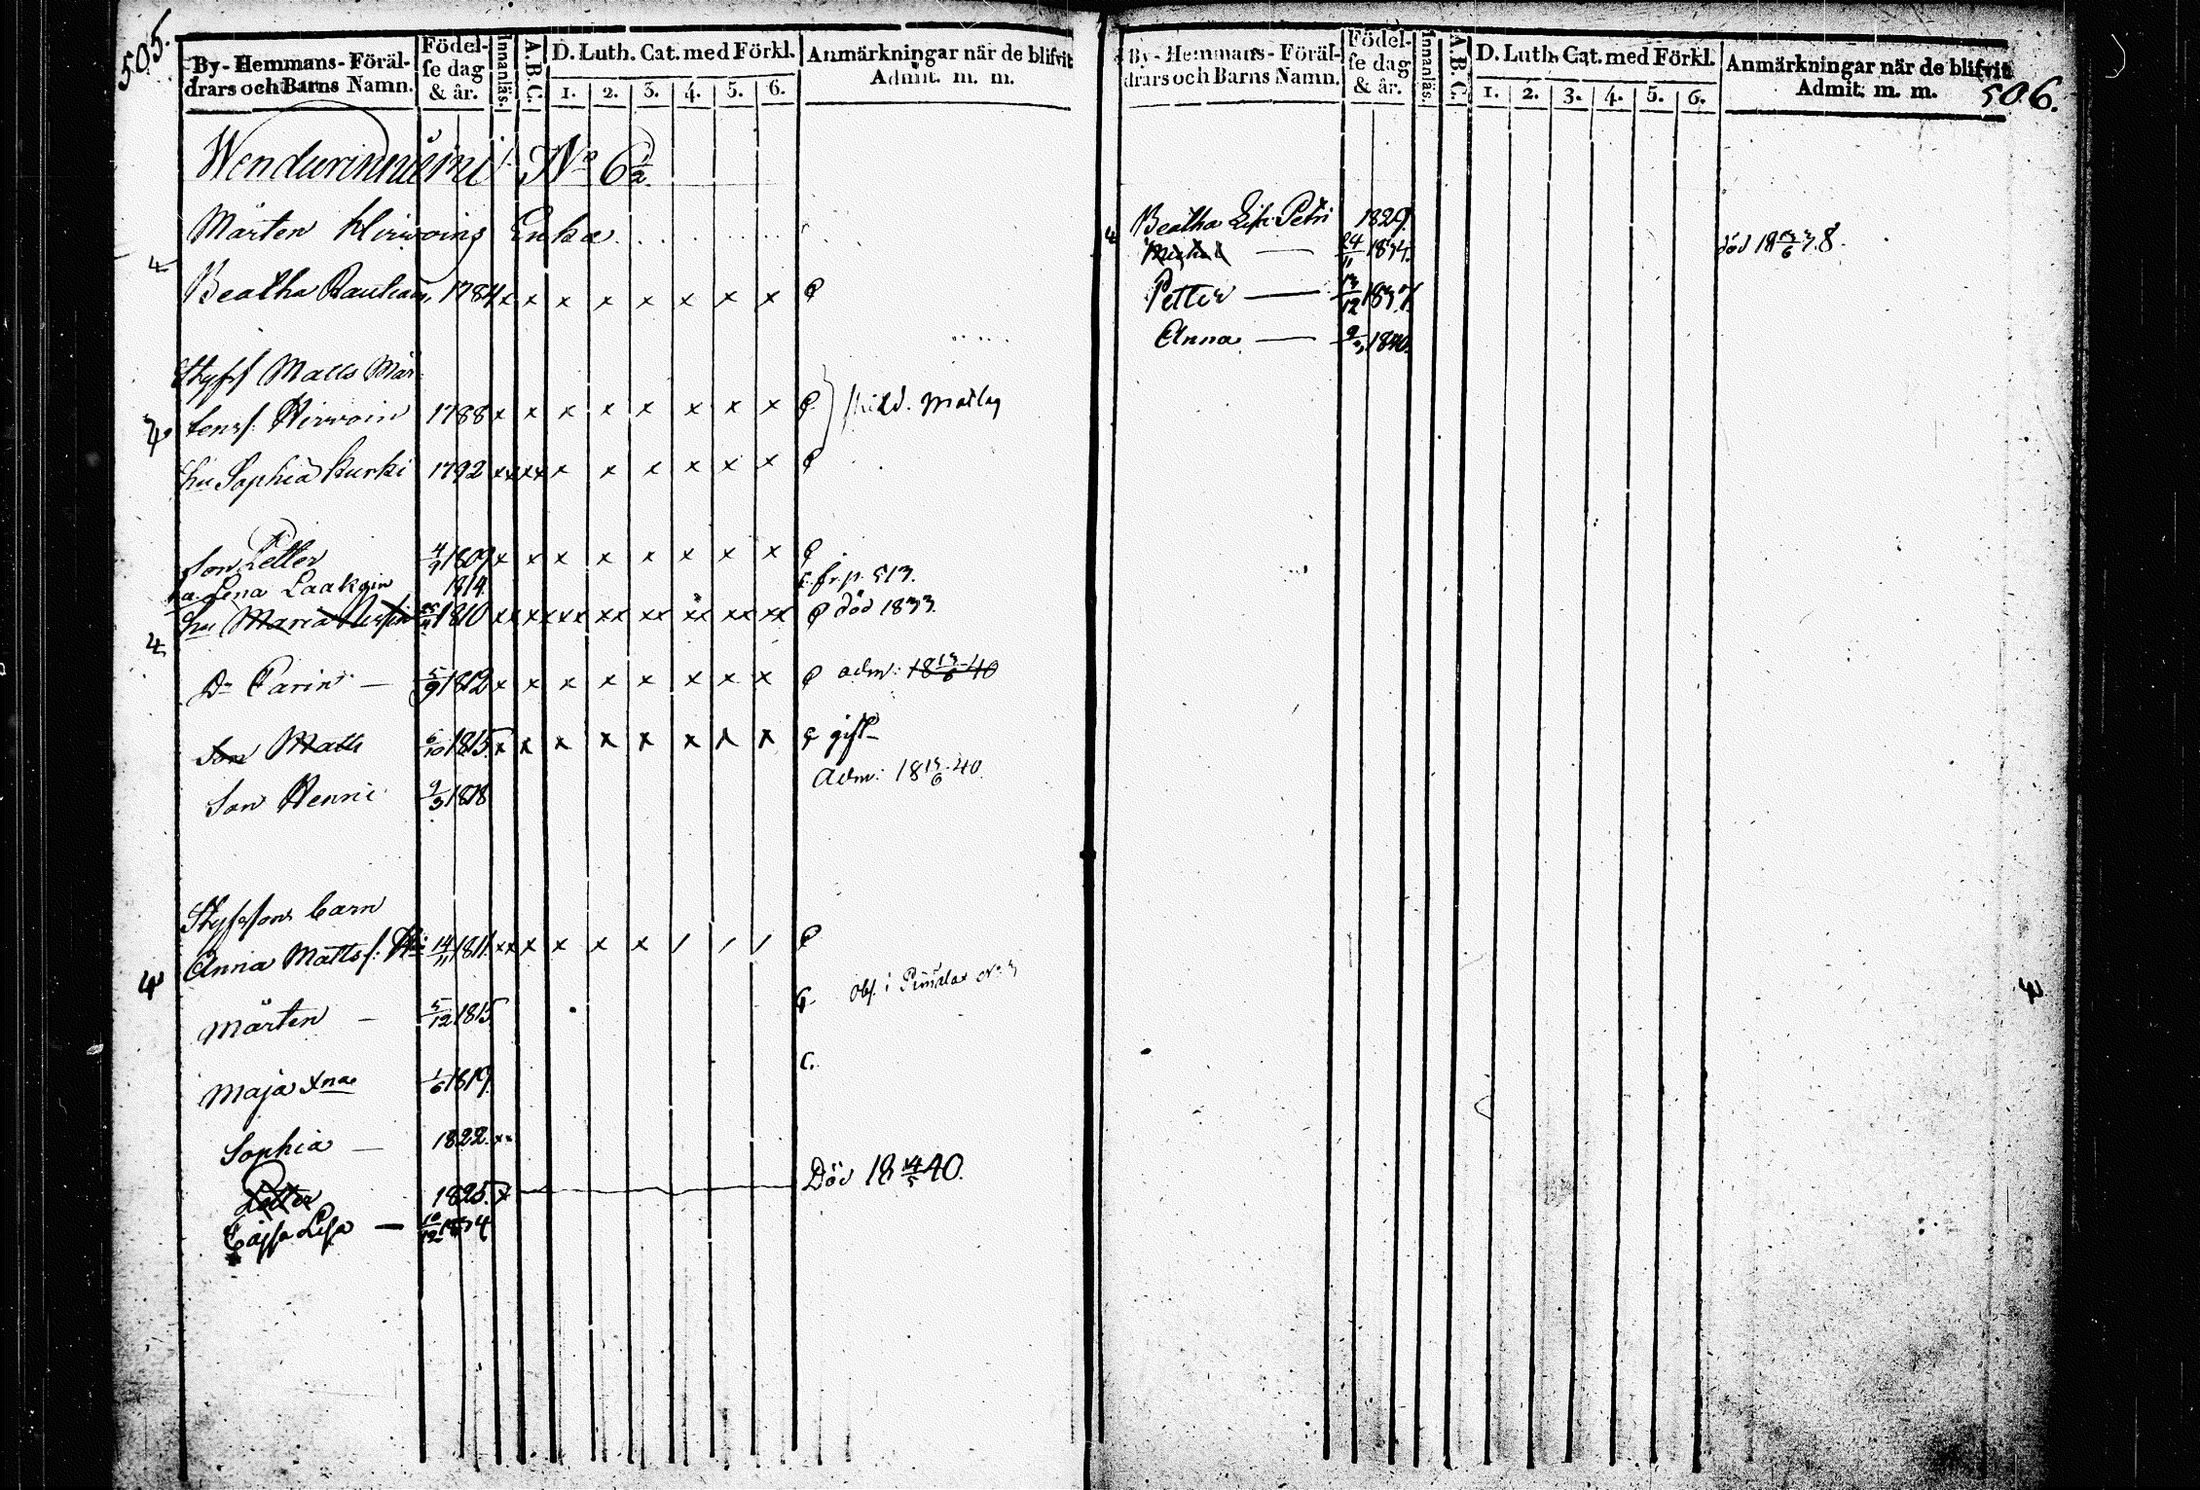 505.
By-Hemmans-Föräl-
drars och Barns Namn.
Födel-
se dag
& år.
Innanläs.
A.B.C.
D. Luth. Cat. med Förkl.
1. 2. 3. 4. 5. 6.
Anmärkningar när de blifvit
Admit. m. m.
No 6 1/2.
Mårten Hirvoins Enka
4
Beatha 1784 x x x x x x x x
Styfs. Matts Mår-
tenss. Hirvoin 1788 x x x x x x x x
hu Sophia Kurki 1792 xx xx x x x x x x
Son Petter 4/7 1809 x x x x x x x x
Lena Laakoin 1814. fr. p. 513.
hu Maria 1810 xx xx xx xx xx xx xx xx död 1833.
4
Dr Carin — 5/9 1812 x x x x x x x x adm: 18 13/6 40
Son Matts 6/10 1815 x x x x x x x x gift
Son Henric 9/3 1818 Adm: 18 13/6 40.
Styfsons barn
Anna Mattsf: 14/11 1811 xx x x x x / / /
4
Mårten — 5/12 1815
Maja Stna 1/6 1819. C.
Sophia — 1822. xx
Petter 1825. x Död 18 14/5 40.
Cajsa Lisa — 10/12 1834
By-Hemmans-Föräl-
drars och Barns Namn.
Födel-
se dag
& år.
Innanläs.
A.B.C.
D. Luth. Cat. med Förkl.
1. 2. 3. 4. 5. 6.
Anmärkningar när de blifvit
Admit. m. m.
506.
4 Beatha Lis: Petri 1829.
Michel — 24/11 1834. död 18 13/6 38.
Petter — 13/12 1837.
Anna — 9/3 1840.
4